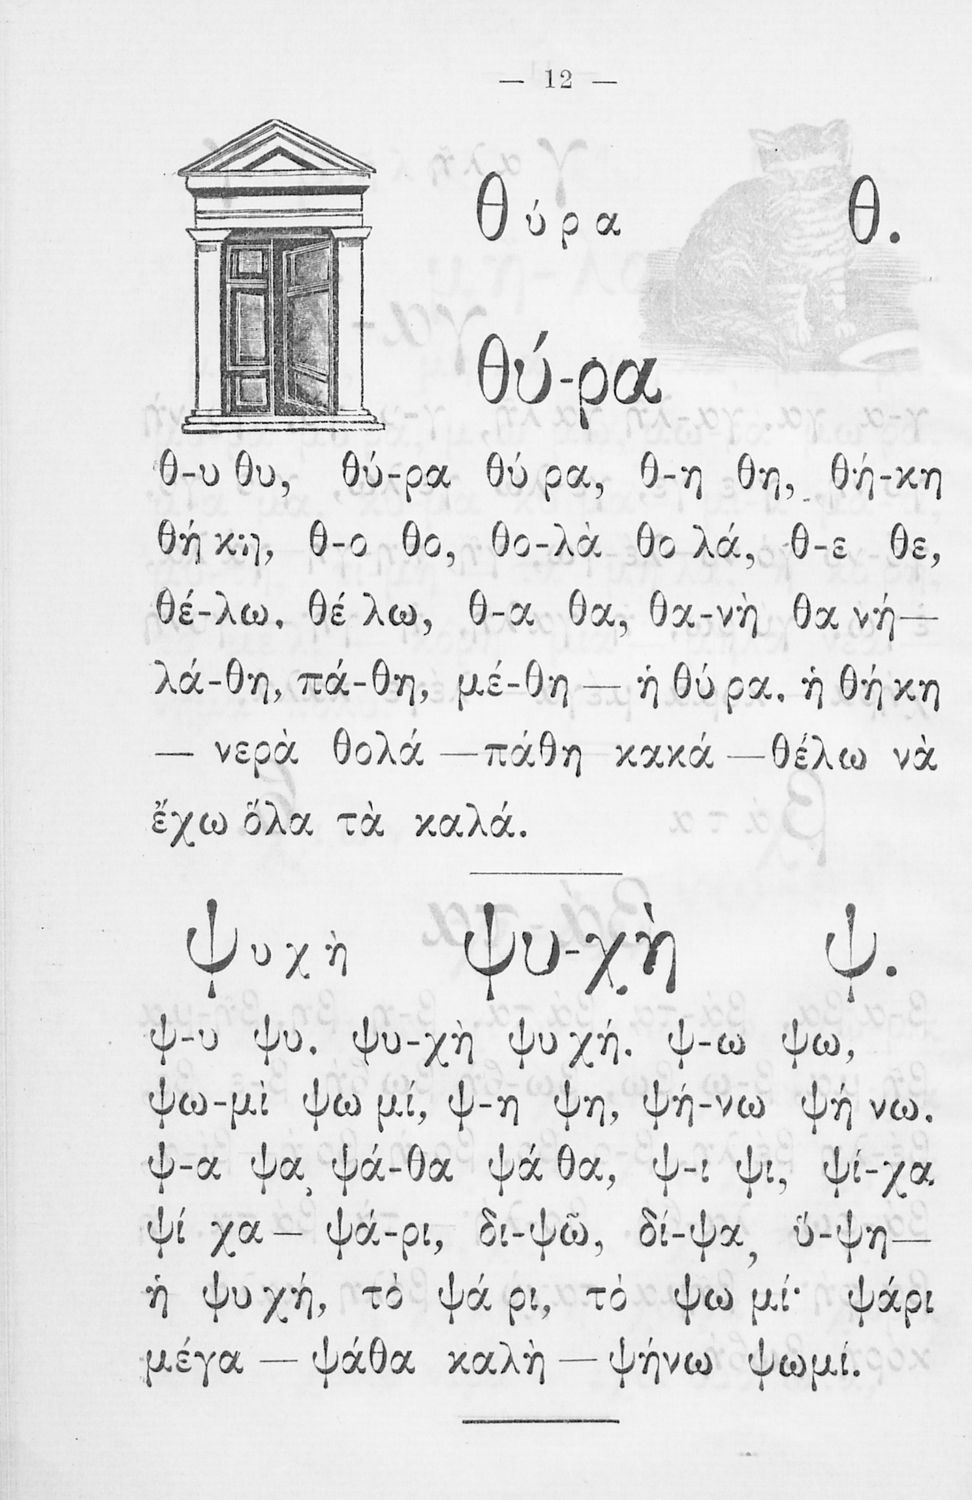 — 12 —
θύρα θ.
θύ-ρα
θ-υ θυ, θύ-ρα θύ ρα, θ-η θη, θή-κη
θή κη, θ-ο θο, θο-λὰ θο λά, θ-ε θε,
θέ-λω. θέ λω, θ-α θα, θα-νὴ θα νή—
λά-θη, πά-θη, μέ-θη — ἡ θύ ρα. ἡ θή κη
— νερὰ θολά — πάθη κακά — θέλω νὰ
ἔχω ὅλα τὰ καλά.
ψυχὴ ψυ-χὴ ψ.
ψ-υ ψυ. ψυ-χὴ ψυ χή. ψ-ω ψω,
ψω-μὶ ψω μί, ψ-η ψη, ψή-νω ψή νω.
ψ-α ψα, ψά-θα ψά θα, ψ-ι ψι, ψί-χα
ψί χα — ψά-ρι, δι-ψῶ, δί-ψα, ὕ-ψη—
ἡ ψυ χή, τὸ ψά ρι, τὸ ψω μί· ψάρι
μέγα — ψάθα καλὴ — ψήνω ψωμί.